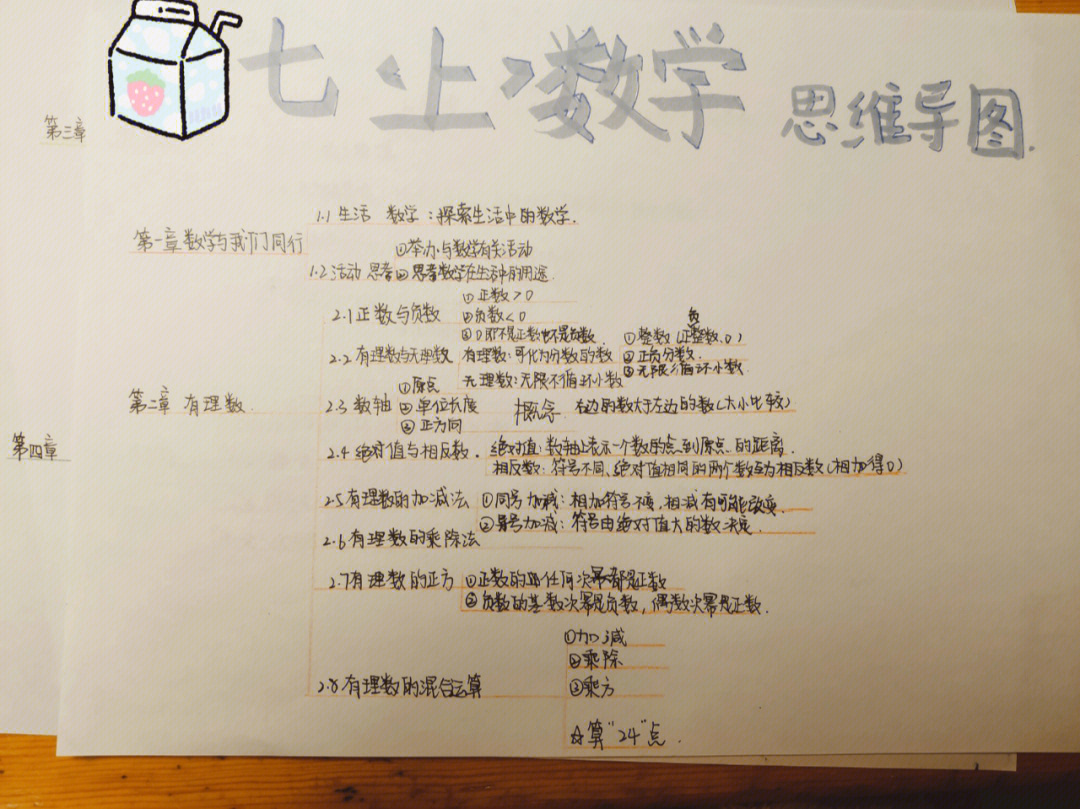 七《上》数学 思维导图.
第三章
1.1 生活 数学:探索生活中的数学.
第一章 数学与我们同行
①举办与数学有关活动
1.2 活动 思考 ②思考数学在生活中的用途.
①正数>0
2.1 正数与负数 ②负数<0
③0即不是正数也不是负数.
负
①整数(正整数、0)
2.2 有理数与无理数 有理数:可化为分数的数 ②正负分数.
③无限循环小数.
无理数:无限不循环小数
①原点
第二章 有理数. 2.3 数轴 ②单位长度 概念 右边的数大于左边的数(大小比较)
③正方向
第四章
2.4 绝对值与相反数. 绝对值:数轴上表示一个数的点到原点的距离.
相反数:符号不同、绝对值相同的两个数互为相反数(相加得0)
2.5 有理数的加减法 ①同号加减:相加符号不变,相减有可能改变.
②异号加减:符号由绝对值大的数决定.
2.6 有理数的乘除法
2.7 有理数的正方 ①正数的任何次幂都是正数
②负数的基数次幂是负数,偶数次幂是正数.
①加减
②乘除
2.8 有理数的混合运算 ③乘方
☆算"24"点.